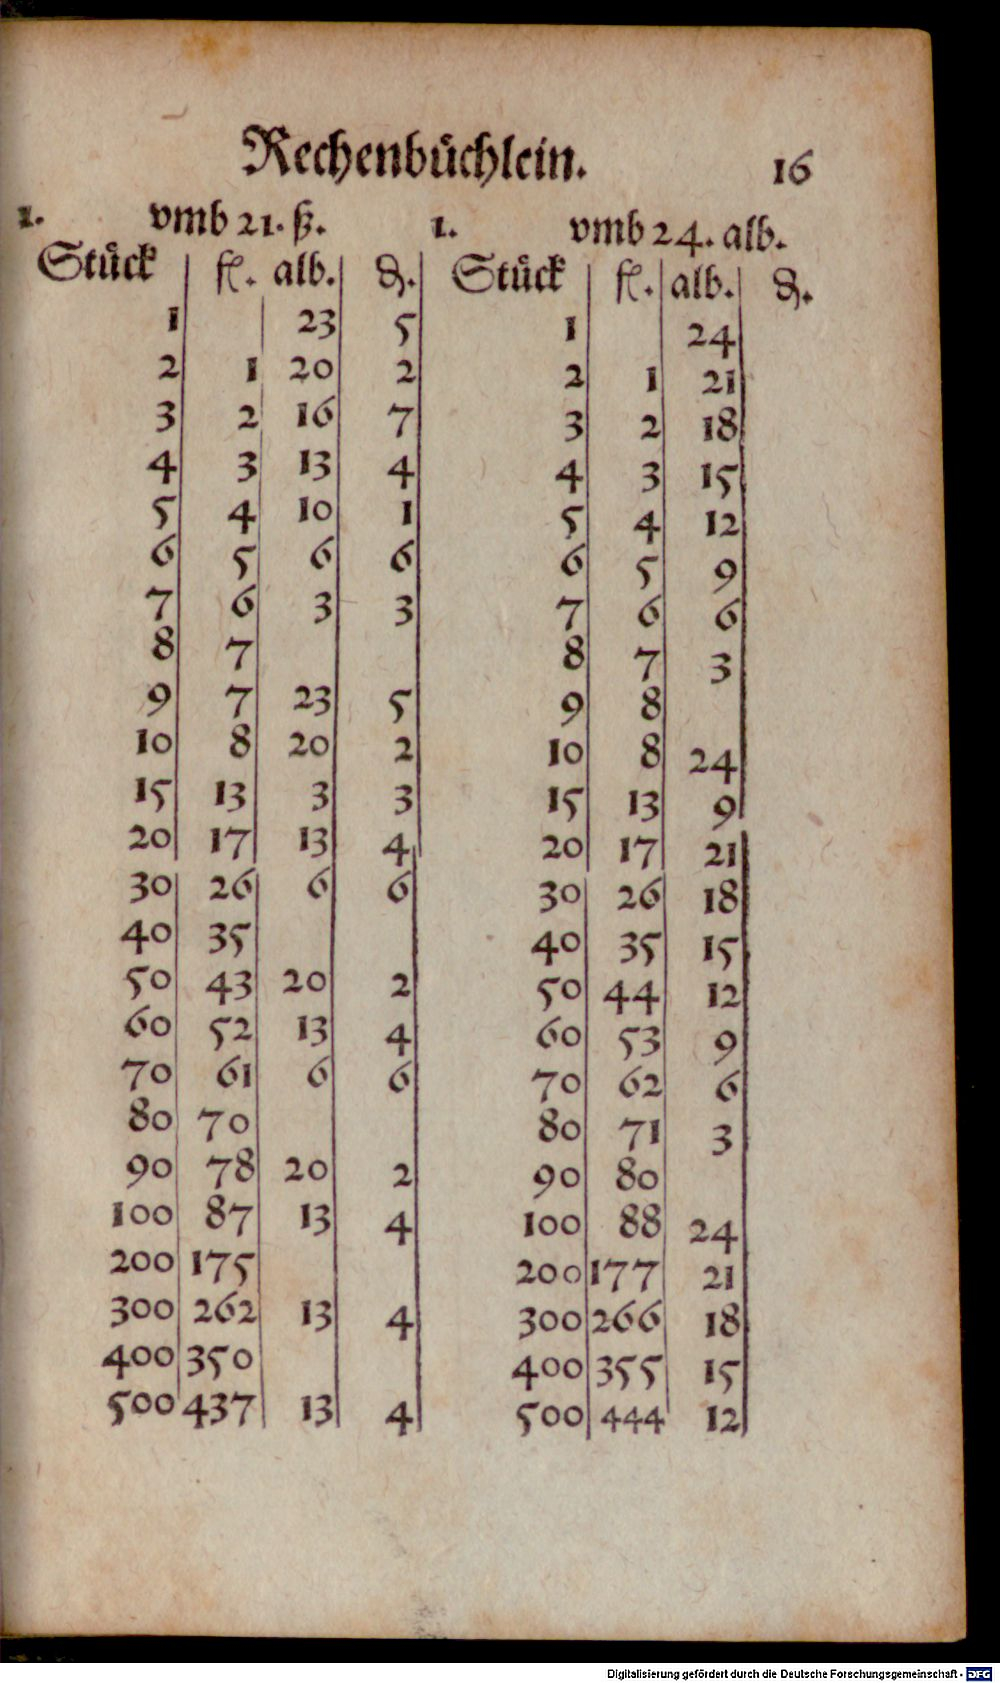 Rechenbüchlein. 16
1. vmb 21. ß. 1. vmb 24. alb.
Stück fl. alb. ₰. Stück fl. alb. ₰.
1 23 5 1 24
2 1 20 2 2 1 21
3 2 16 7 3 2 18
4 3 13 4 4 3 15
5 4 10 1 5 4 12
6 5 6 6 6 5 9
7 6 3 3 7 6 6
8 7 8 7 3
9 7 23 5 9 8
10 8 20 2 10 8 24
15 13 3 3 15 13 9
20 17 13 4 20 17 21
30 26 6 6 30 26 18
40 35 40 35 15
50 43 20 2 50 44 12
60 52 13 4 60 53 9
70 61 6 6 70 62 6
80 70 80 71 3
90 78 20 2 90 80
100 87 13 4 100 88 24
200 175 200 177 21
300 262 13 4 300 266 18
400 350 400 355 15
500 437 13 4 500 444 12
Digitalisierung gefördert durch die Deutsche Forschungsgemeinschaft - DFG